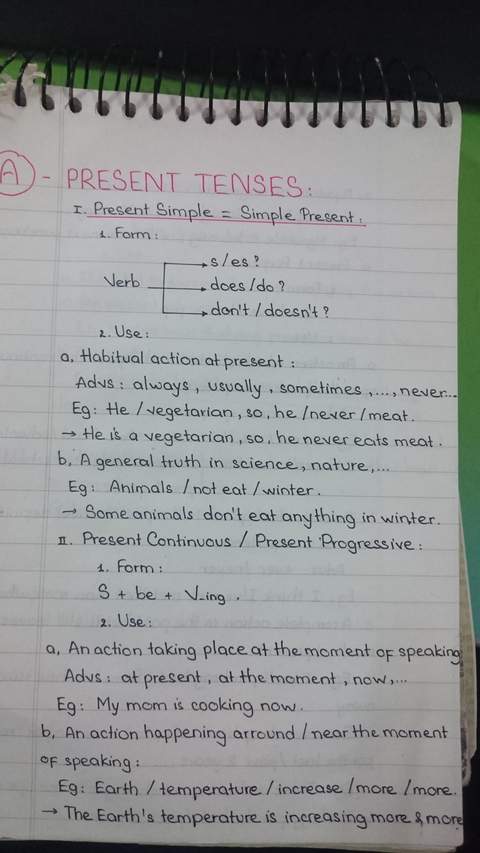 A - PRESENT TENSES:
I. Present Simple = Simple Present:
1. Form:
s/es?
Verb does/do?
don't/doesn't?
2. Use:
a, Habitual action at present:
Advs: always, usually, sometimes,..., never...
Eg: He/vegetarian, so, he/never/meat.
→ He is a vegetarian, so, he never eats meat.
b, A general truth in science, nature,...
Eg: Animals/not eat/winter.
→ Some animals don't eat anything in winter.
II. Present Continuous / Present Progressive:
1. Form:
S + be + V-ing.
2. Use:
a, An action taking place at the moment of speaking
Advs: at present, at the moment, now,...
Eg: My mom is cooking now.
b, An action happening arround/near the moment
of speaking:
Eg: Earth/temperature/increase/more/more.
→ The Earth's temperature is increasing more & more